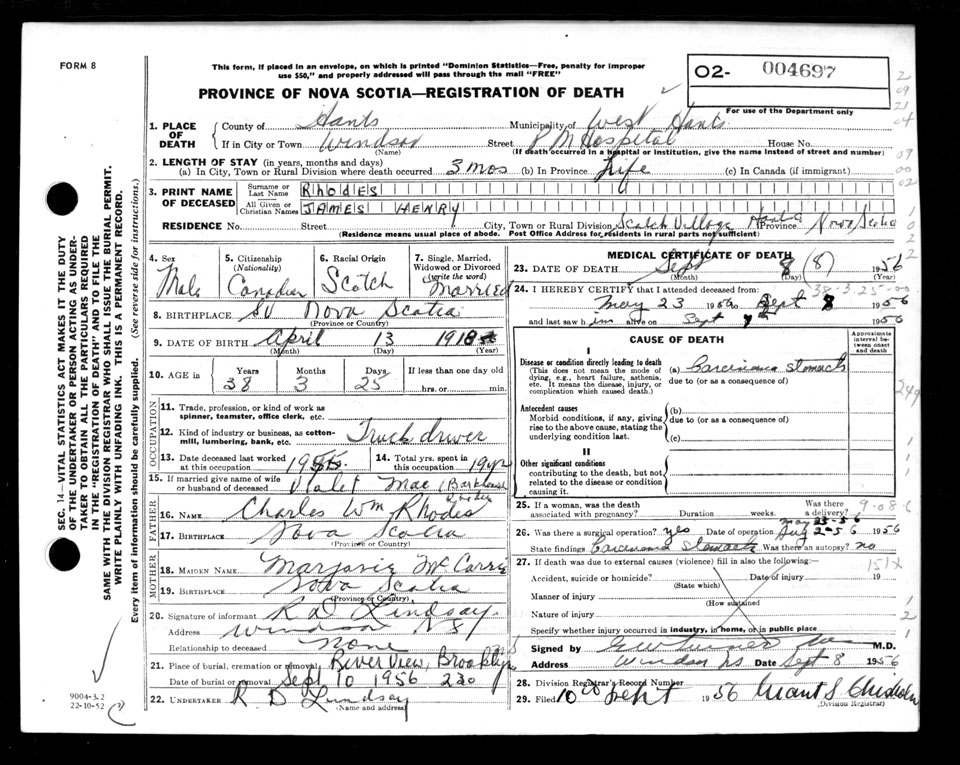 FORM 8
This form, if placed in an envelope, on which is printed "Dominion Statistics—Free, penalty for improper
use $50," and properly addressed will pass through the mail "FREE"
O2- 004697
For use of the Department only
PROVINCE OF NOVA SCOTIA—REGISTRATION OF DEATH
1. PLACE OF DEATH
County of Hants Municipality of West Hants
If in City or Town Windsor Street P M Hospital House No.
(Name) (If death occurred in a hospital or institution, give the name instead of street and number)
2. LENGTH OF STAY (in years, months and days)
(a) In City, Town or Rural Division where death occurred 3 mos (b) In Province Life (c) In Canada (if immigrant)
3. PRINT NAME OF DECEASED
Surname or Last Name RHODES
All Given or Christian Names JAMES HENRY
RESIDENCE No. Street City, Town or Rural Division Scotch Village Hants Province Nova Scotia
(Residence means usual place of abode. Post Office Address for residents in rural parts not sufficient)
4. Sex Male
5. Citizenship (Nationality) Canadian
6. Racial Origin Scotch
7. Single, Married, Widowed or Divorced (write the word) Married
8. BIRTHPLACE SV Nova Scotia
(Province or Country)
9. DATE OF BIRTH April 13 1918
(Month) (Day) (Year)
10. AGE in Years Months Days If less than one day old
38 3 25 hrs. or min.
OCCUPATION
11. Trade, profession, or kind of work as
spinner, teamster, office clerk, etc.
12. Kind of industry or business, as cotton-
mill, lumbering, bank, etc. Truck driver
13. Date deceased last worked at this occupation 1955
14. Total yrs. spent in this occupation 19 yrs
15. If married give name of wife
or husband of deceased Violet Mae (Barkhouse
FATHER
16. NAME Charles Wm Rhodes
17. BIRTHPLACE Nova Scotia
(Province or Country)
MOTHER
18. MAIDEN NAME Marjorie
19. BIRTHPLACE Nova Scotia
(Province or Country)
20. Signature of informant R D Lindsay
Address Windsor N S
Relationship to deceased None
21. Place of burial, cremation or removal River View, Brooklyn
Date of burial or removal Sept 10 1956 230
22. UNDERTAKER R D Lindsay
(Name and address)
MEDICAL CERTIFICATE OF DEATH
23. DATE OF DEATH Sept 8 (8) 1956
(Month) (Day) (Year)
38-3-25-00
24. I HEREBY CERTIFY that I attended deceased from:
May 23 1956 to Sept 8 1956
and last saw him alive on Sept 7th 1956
CAUSE OF DEATH
Approximate interval between onset and death
I
Disease or condition directly leading to death
(This does not mean the mode of dying, e.g., heart failure, asthenia, etc. It means the disease, injury, or complication which caused death.)
(a) Carcinoma Stomach
due to (or as a consequence of)
Antecedent causes
Morbid conditions, if any, giving rise to the above cause, stating the underlying condition last.
(b)
due to (or as a consequence of)
(c)
II
Other significant conditions
contributing to the death, but not related to the disease or condition causing it.
25. If a woman, was the death associated with pregnancy? Duration weeks. Was there a delivery?
26. Was there a surgical operation? yes Date of operation May 23-56 Aug 2-56 1956
State findings Carcinoma Stomach Was there an autopsy? no
27. If death was due to external causes (violence) fill in also the following:—
151X
Accident, suicide or homicide? Date of injury 19
(State which)
Manner of injury
(How sustained
Nature of injury
Specify whether injury occurred in industry, in home, or in public place
Signed by M.D.
Address Windsor NS Date Sept 8 1956
28. Division Registrar's Record Number
29. Filed 10 Sept 1956 Grant S Chisholm
(Division Registrar)
SEC. 14—VITAL STATISTICS ACT MAKES IT THE DUTY
OF THE UNDERTAKER OR PERSON ACTING AS UNDER-
TAKER TO OBTAIN ALL THE PARTICULARS REQUIRED
IN THE "REGISTRATION OF DEATH" AND TO FILE THE
SAME WITH THE DIVISION REGISTRAR WHO SHALL ISSUE THE BURIAL PERMIT.
WRITE PLAINLY WITH UNFADING INK. THIS IS A PERMANENT RECORD.
Every item of information should be carefully supplied. (See reverse side for instructions.)
9004-3.2
22-10-52